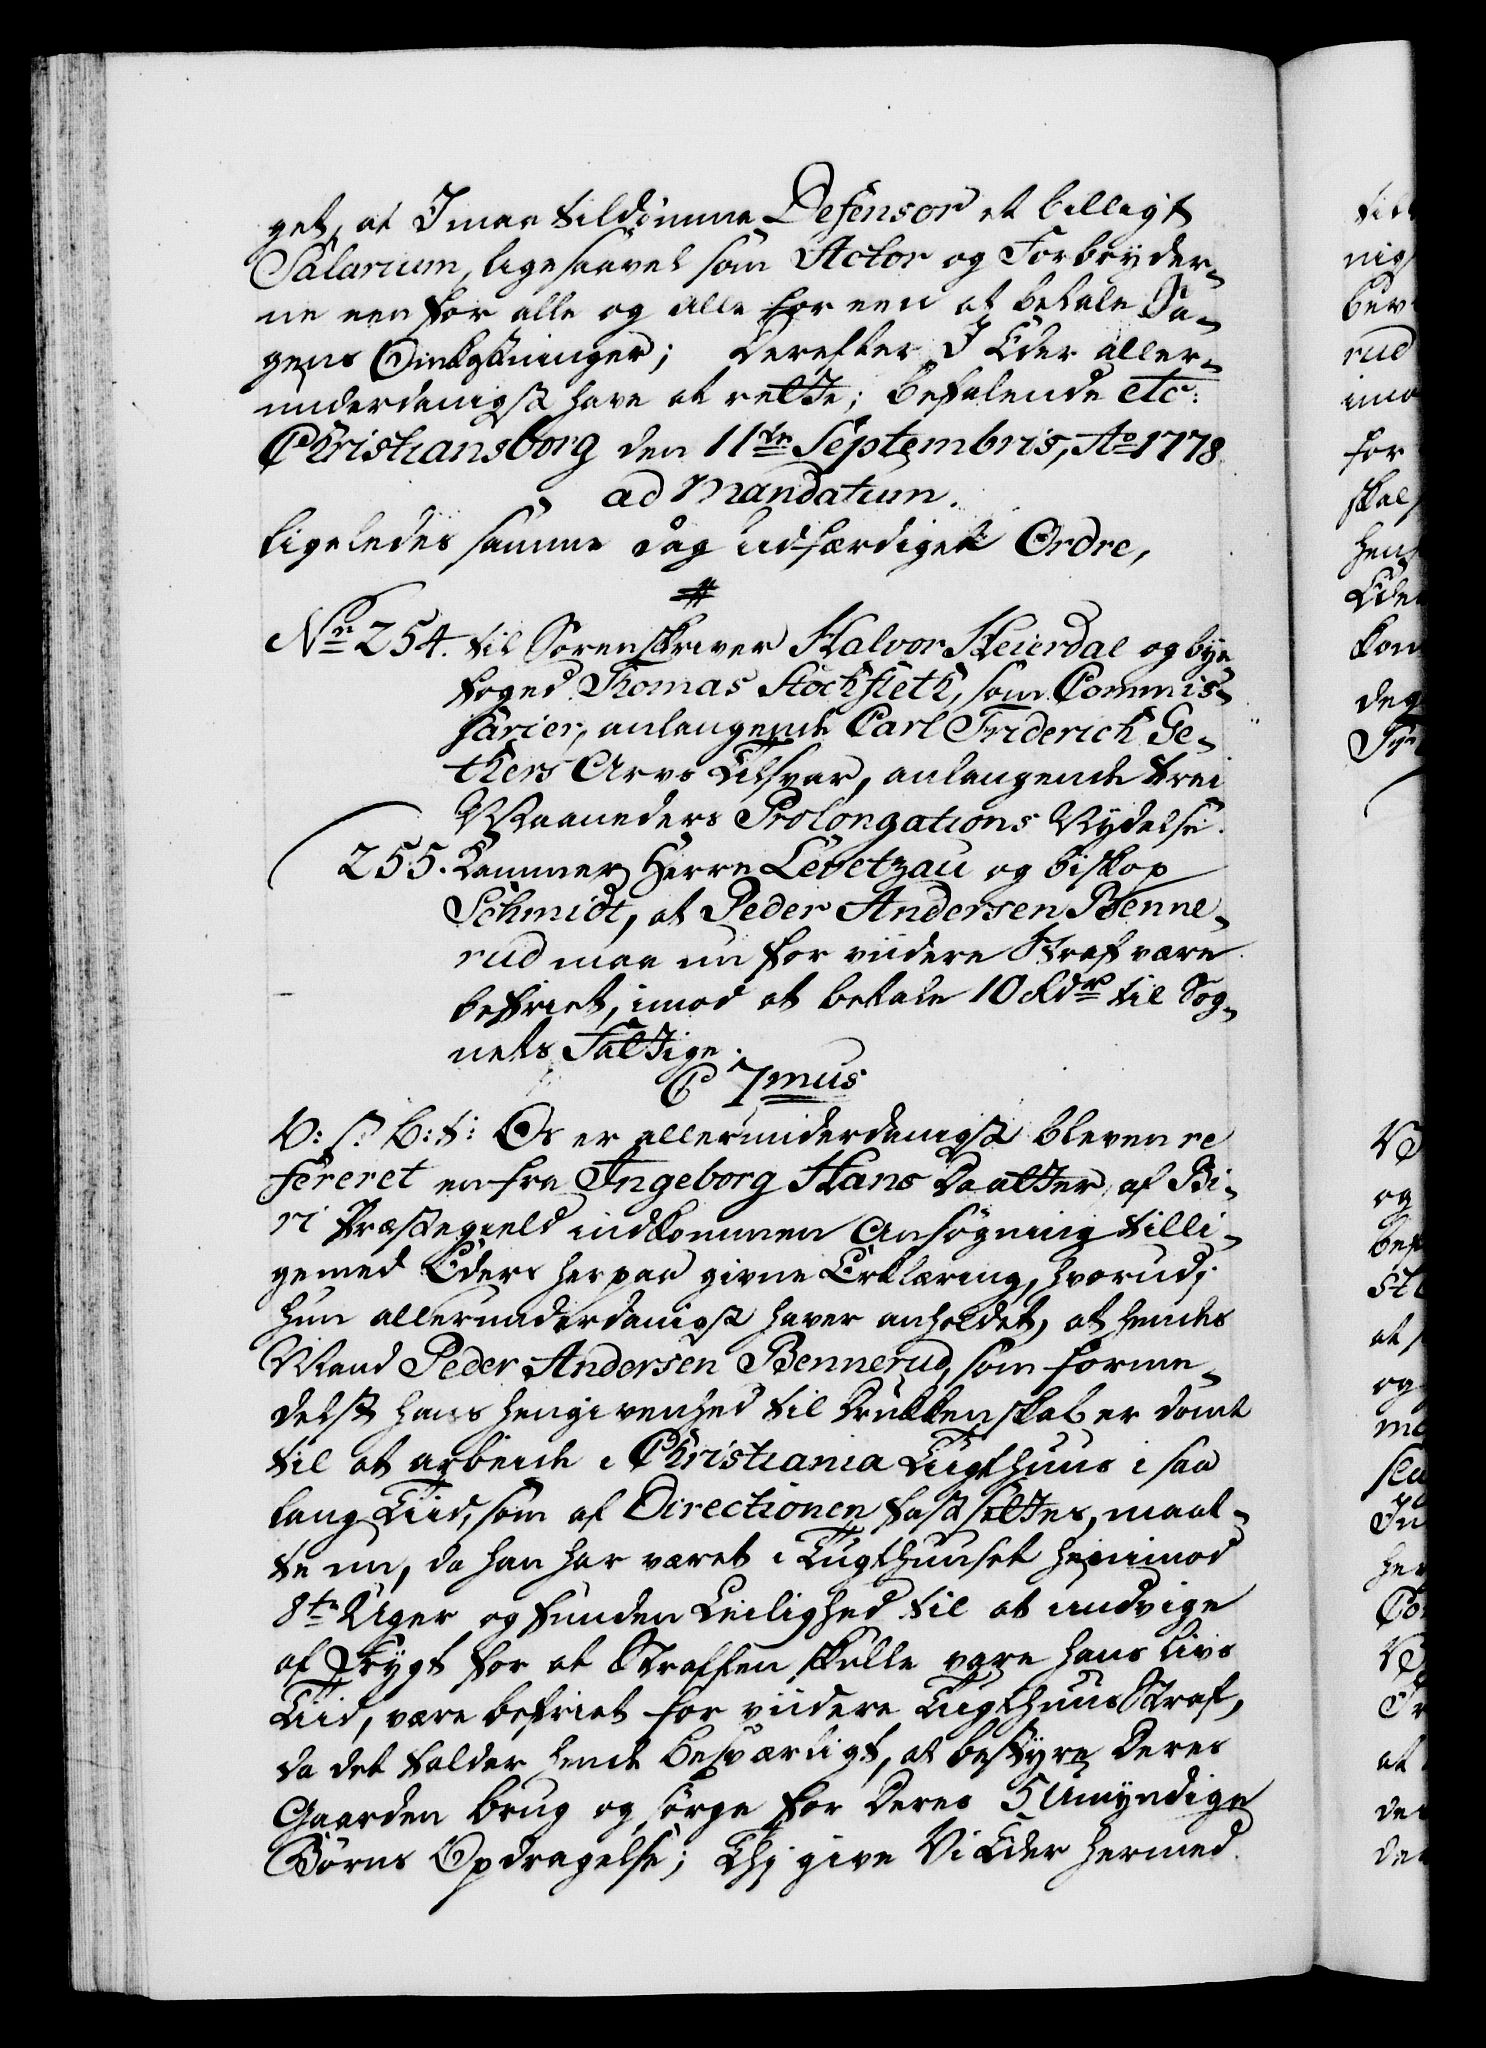 get, at I maa tildømme Defensor et billigt
Salarium, ligesaavel som Actor og Forbryder-
ne een for alle og alle for een at betale Sa-
gens Omkostninger; derefter I Eder aller-
underdanigst have at rette; Befalende etc:
Christiansborg den 11te Septembris, Ao 1778
ad Mandatum.
ligeledes samme dag udfærdiget Ordre,
#
Nr 254. til Sorenskriver Halvor Heierdal og bye
foged Thomas Stockfleth, som Commis-
sarier, anlangende Carl Friderich Ge-
thers Arvs Tilsvar, anlangende trei
Maaneders Prolongations Nydelse.
255. Kammer Herre Levetzau og biskop
Schmidt, at Peder Andersen Benne-
rud maa nu for viidere Straf være
befriet, imod at betale 10 Rdr til Sog-
nets Fattige.
C 7mus
V: s: G: T: Os er allerunderdanigst bleven re
fereret en fra Ingeborg Hans Daatter af Bi-
ri Præstegield indkommen Ansøgning tilli-
gemed Eders herpaa givne Erklæring, hvorudj
hun allerunderdanigst haver anholdet, at hendes
Mand Peder Andersen Bennerud, som forme-
delst hans hengivenhed til Drukkenskab er dømt
til at arbeide i Christiania Tugthuus i saa
lang Tiid, som af Directionen fastsættes, maat-
te nu, da han har været i Tugthuuset henimod
8te Uger og funden Leilighed til at undvige
af Frygt for at Straffen skulle vare hans livs
Tiid, være befriet for viidere Tugthuus Straf,
da det falder hende besværligt, at bestyre Deres
Gaarden brug og sørge for Deres 5 Umyndige
Børns Opdragelse; Thj give Vi Eder hermed